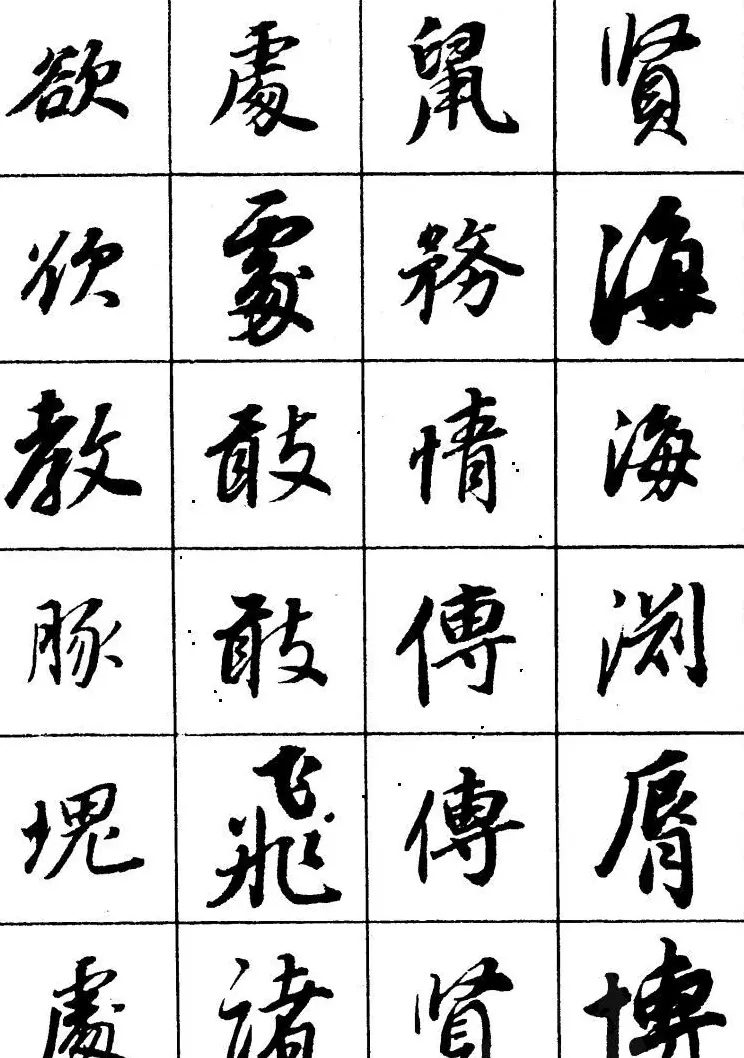 欲 處 鼠 賢
欲 處 務 海
教 敢 情 海
豚 敢 傳 渕
塊 飛 傳 脣
處 諸 賢 博